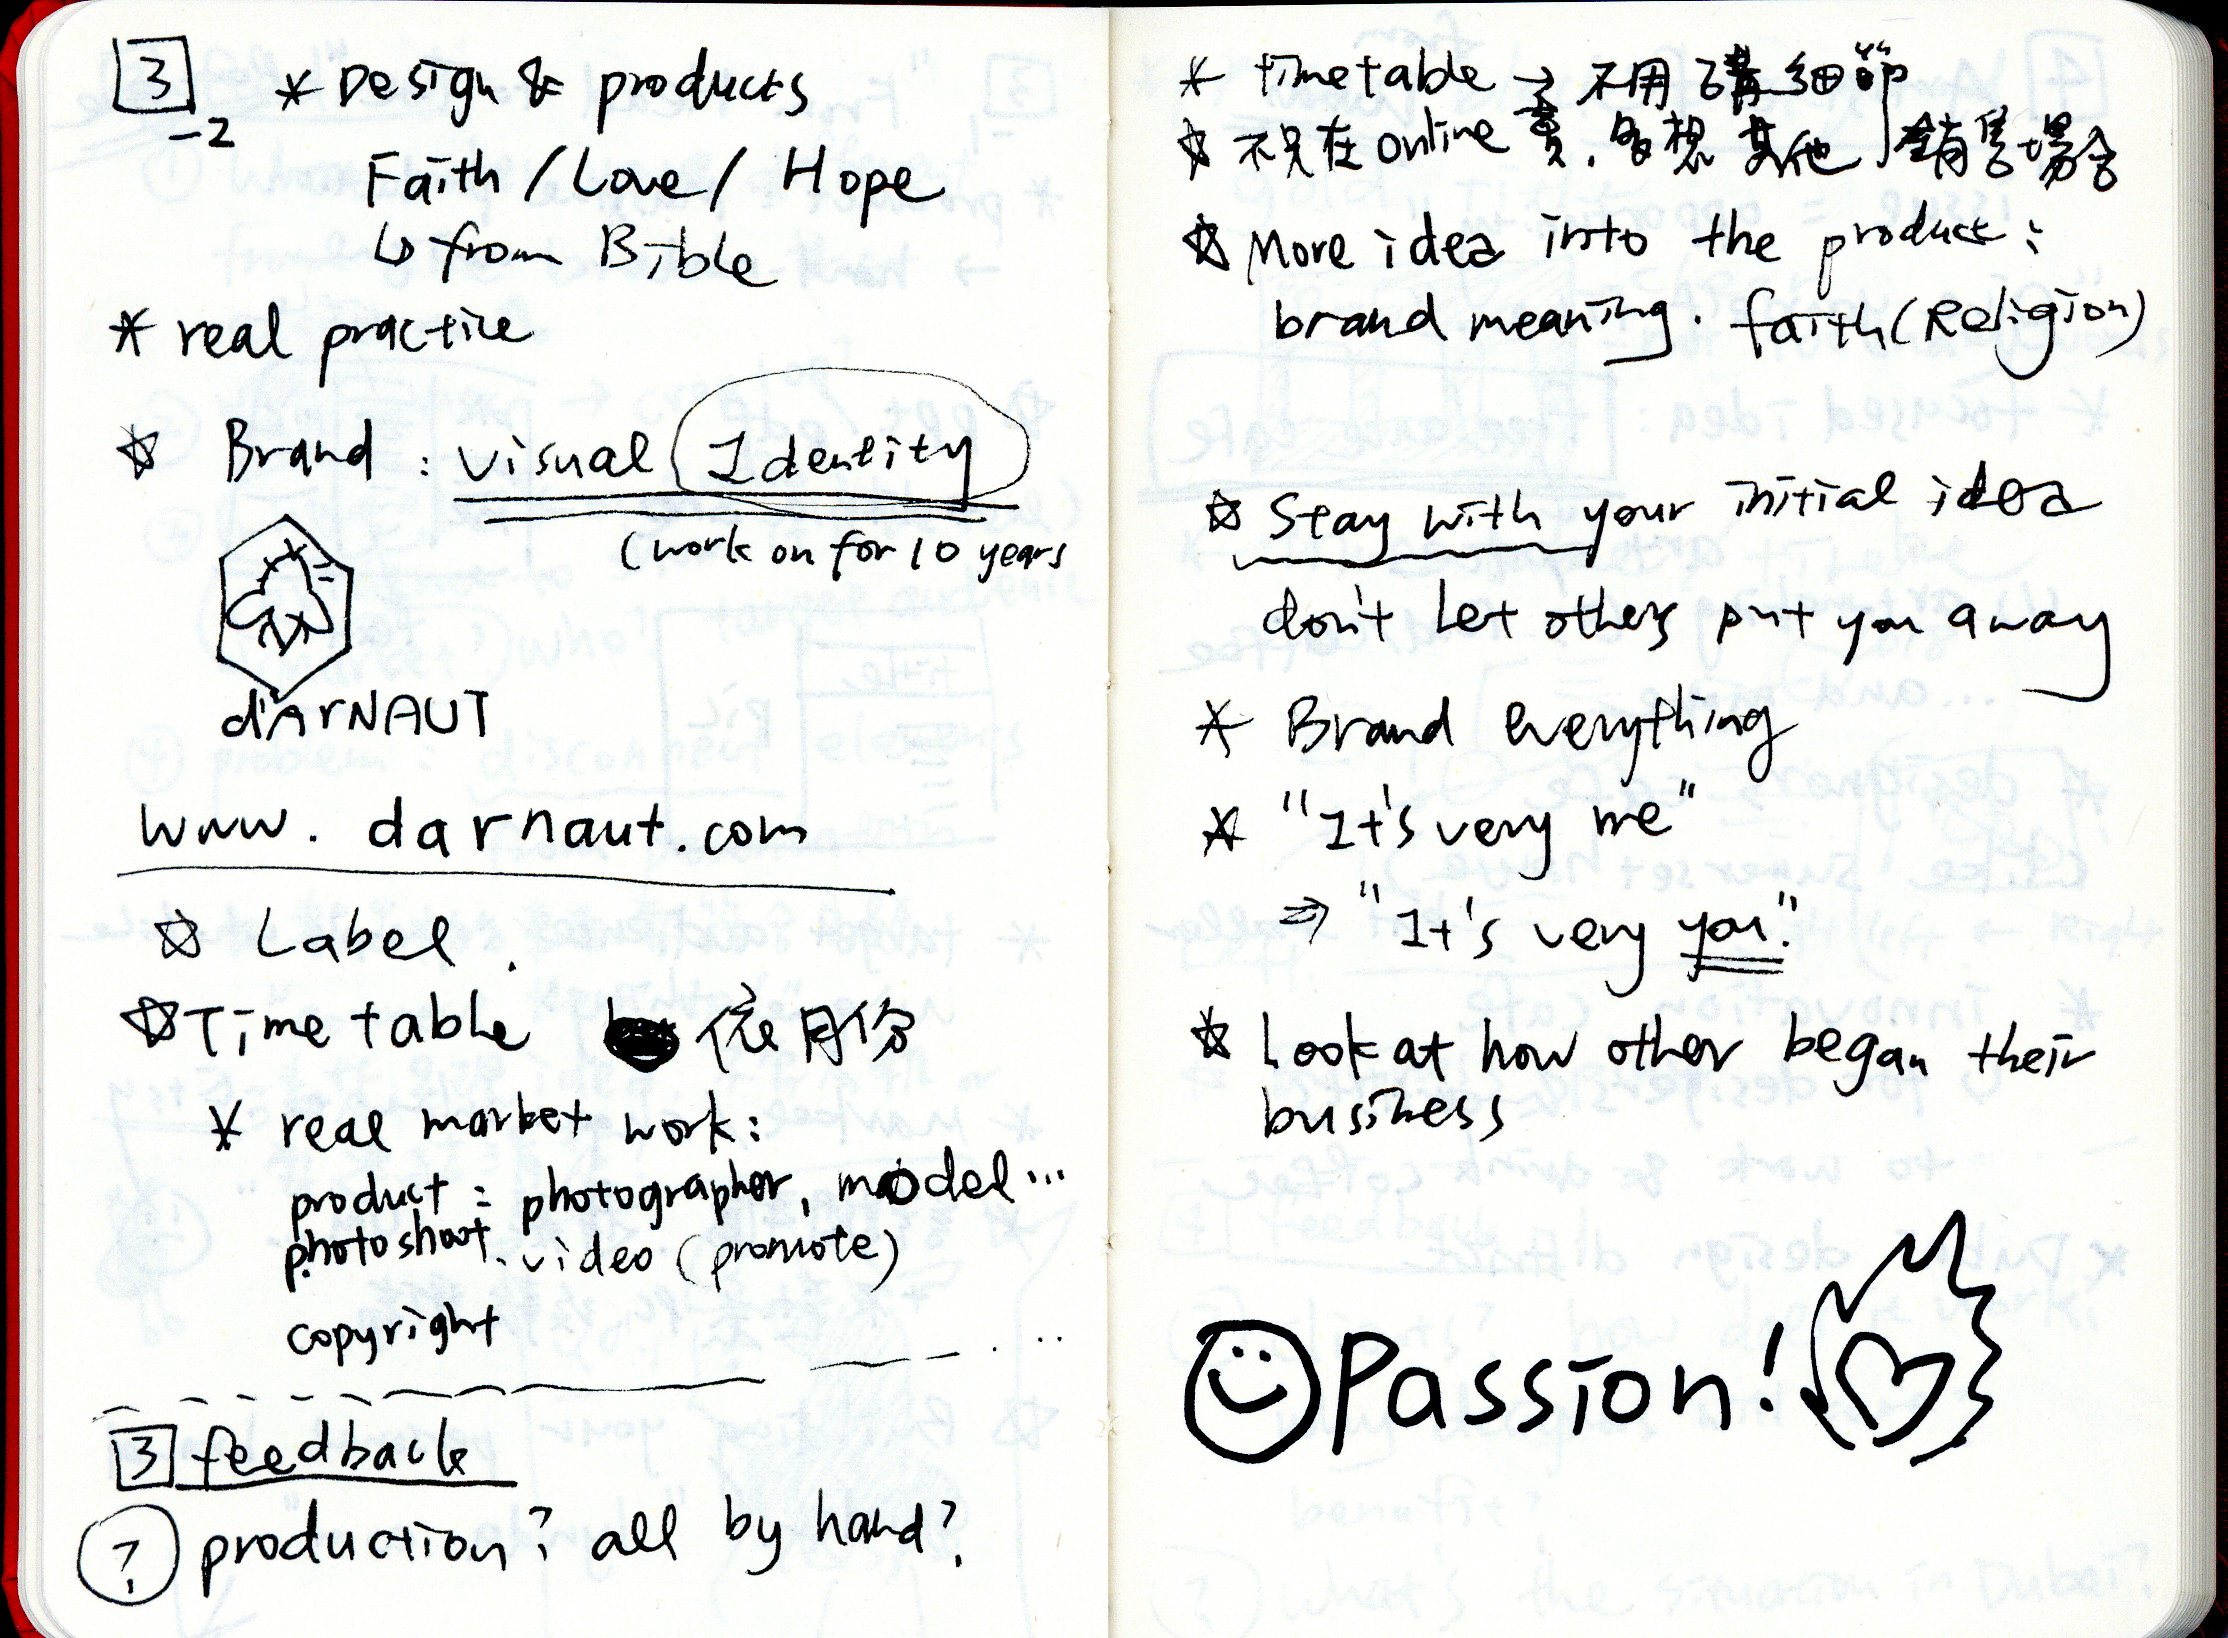 3
-2
* Design & products
Faith / Love / Hope
↳ from Bible
* real practice
☆ Brand : visual Identity
(work on for 10 years
d'ArNAUT
www.darnaut.com
☆ Label.
☆ Time table 月份
* real market work:
product : photographer, model...
photoshoot. video (promote)
copyright
3 feedback
? production? all by hand?
* timetable → 不用講細節
☆ 不只在online賣.多想其他銷售場合
☆ More idea into the product:
brand meaning. faith (Religion)
☆ Stay with your initial idea
don't let others put you away
* Brand everything
* "It's very me"
⇒ "It's very you."
☆ Look at how other began their
business
Passion!